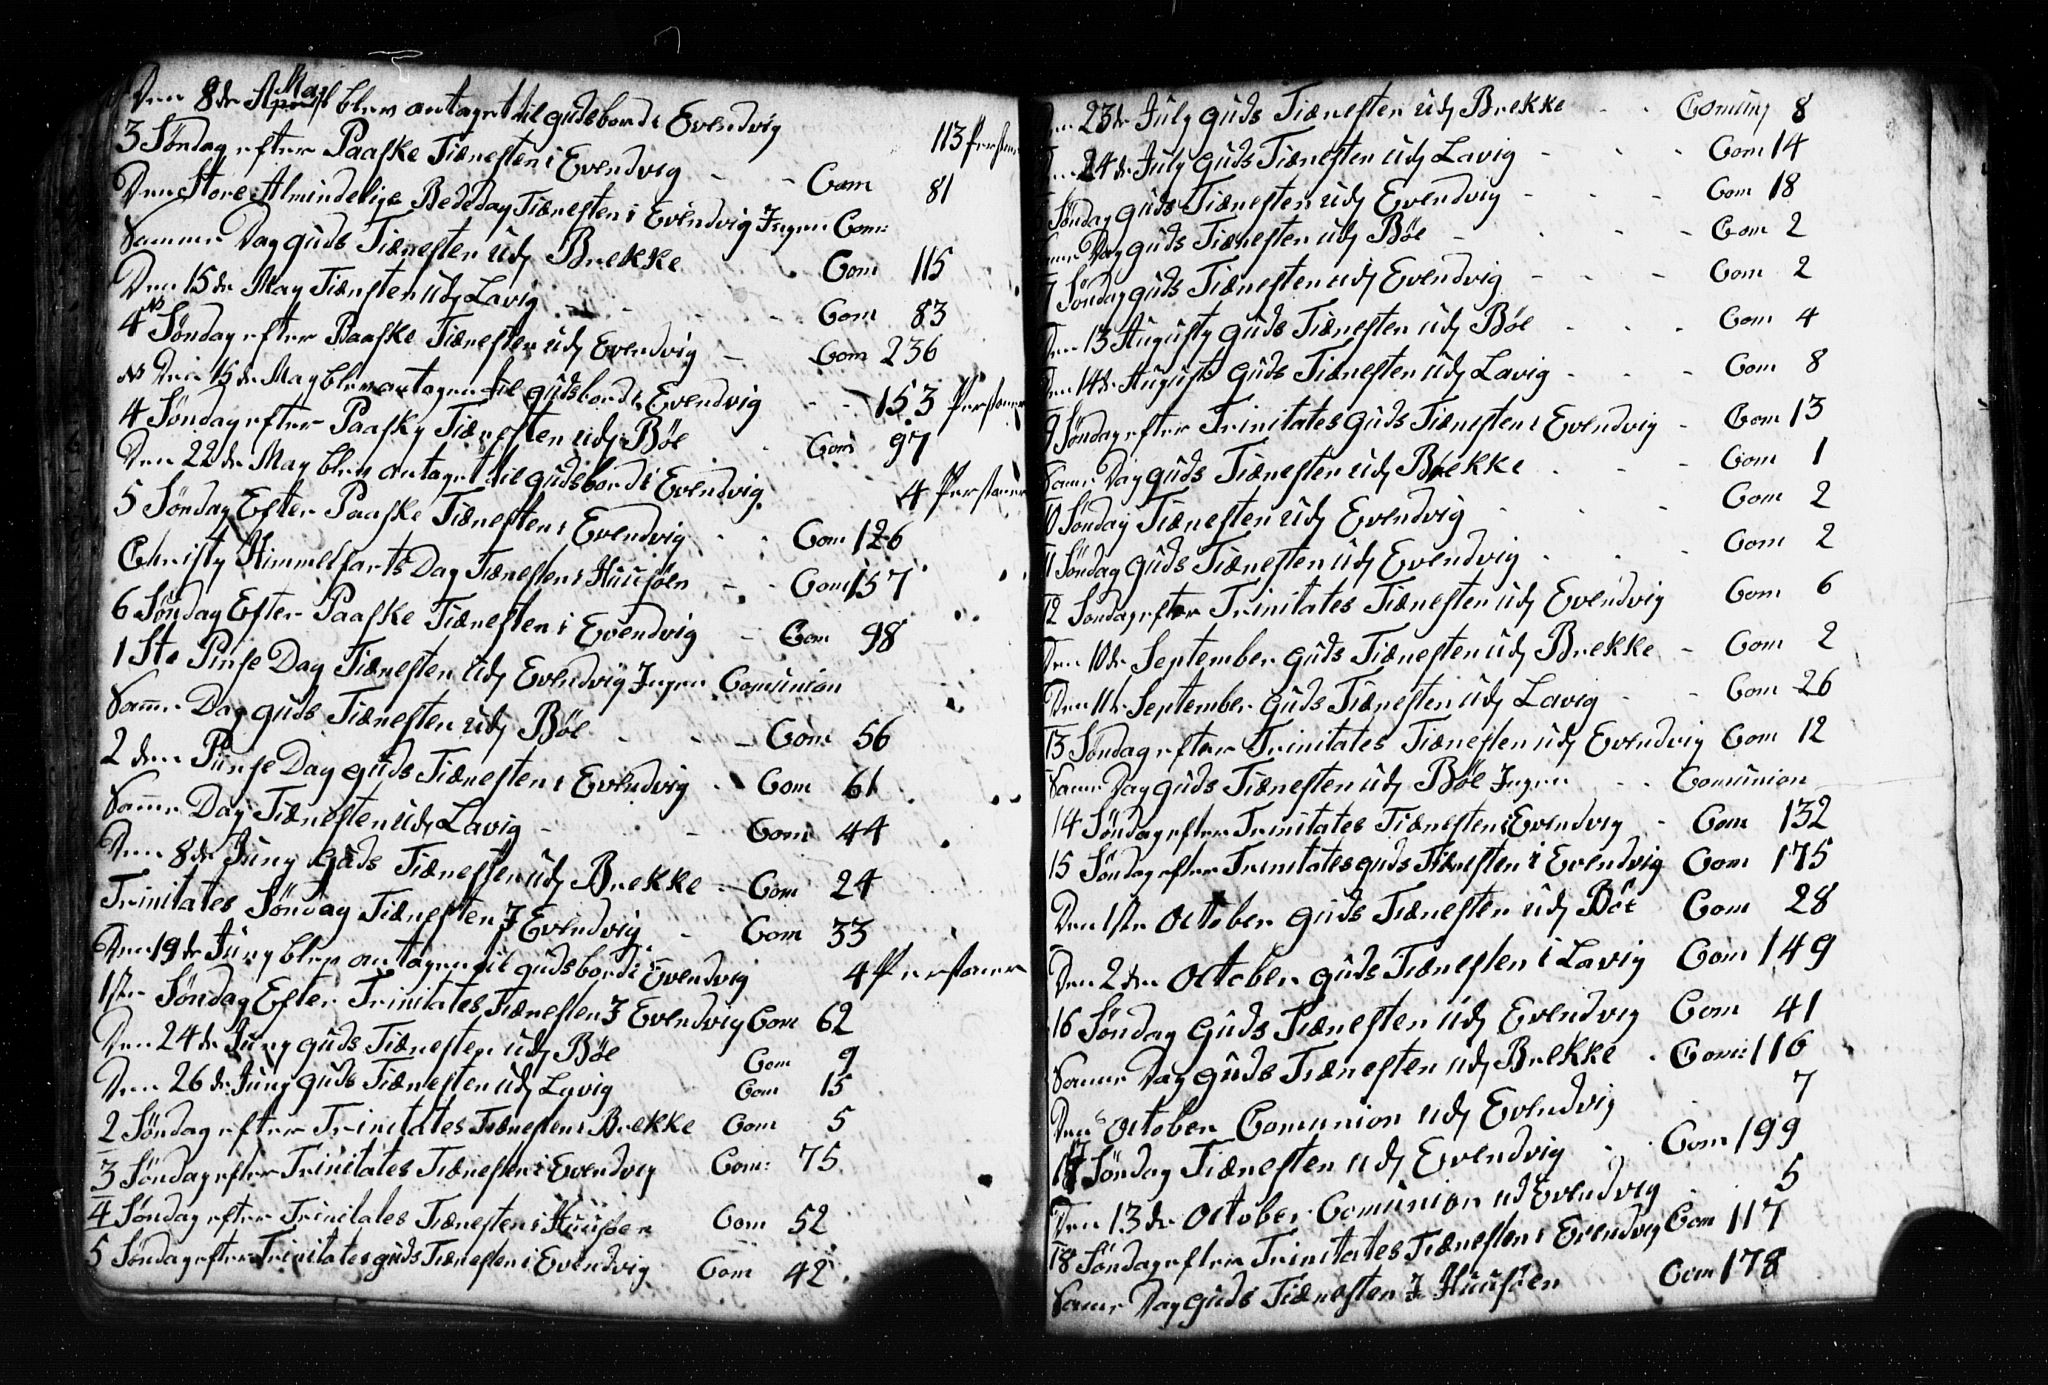 Den 8de May blev antaget til gudsbord i Evendvig 113 Persone
3 Søndag efter Paaske Tiænesten i Evendvig - - Com 81
Den Store Almindelige Bededag Tiænesten i Evendvig Ingen Com:
Samme Dag guds Tiænesten udj Brekke . Com 115
Den 15de May Tiænsten udj Lavig - - - Com 83
4 Søndag efter Paaske Tiænesten udj Evendvig - Com 236
NB Den 15de May blev antagen til gudsbord i Evendvig - - 153 Personer
4 Søndag efter Paasky Tiænesten udj Bøe . . Com 97
Den 22de May blev antaget til gudsbord i Evendvig. 4 Personer
5 Søndag Efter Paaske Tiænesten i Evendvig - - Com 126
Christy Himmelfarts Dag Tiænesten i Huusøen - - Com 157
6 Søndag Efter Paaske Tiænesten i Evendvig - Com 98
1Ste Pinse Dag Tiænesten udj Evendvig Ingen Comunion
Samme Dag guds Tiænesten udj Bøe - - - Com 56
2den Pinse Dag guds Tiænesten i Evendvig - Com 61
Samme Dag Tiænesten udj Lavig - - Com 44
Den 8de Juny guds Tiænesten udj Brekke - Com 24
Trinitates Søndag Tiænesten I Evendvig. - Com 33
Den 19de Juny blev antagen til gudsbord i Evendvig 4 Personer
1ste Søndag Efter Trinitates Tiænesten I Evendvig Com 62
Den 24de Juny guds Tiænesten udj Bøe Com 9
Den 26de Juny guds Tiænesten udj Lavig Com 15
2 Søndag efter Trinitates Tiænesten i Brekke Com 5
3 Søndag efter Trinitates Tiænesten i Evendvig Com: 75
4 Søndag efter Trinitates Tiænesten i Huusøen Com 52
5 Søndag efter Trinitates guds Tiænesten i Evendvig Com 42
23de July guds Tiænesten udj Brekke - - Comuny 8
24de July guds Tiænesten udj Lavig - - - Com 14
Søndag guds Tiænesten udj Evendvig - - - Com 18
Dag guds Tiænesten udj Bøe - - - - Com 2
7 Søndag guds Tiænesten udj Evendvig - - - Com 2
Den 13 Augusty guds Tiænesten udj Bøe - - - Com 4
Den 14de Augusti guds Tiænesten udj Lavig - - - Com 8
9 Søndag efter Trinitates guds Tiænesten i Evendvig - Com 13
Samme Dag guds Tiænesten udj Brekke . - - Com 1
10 Søndag Tiænesten udj Evendvig - - - Com 2
11 Søndag guds Tiænesten udj Evendvig . . - Com 2
12 Søndag efter Trinitates Tiænesten udj Evendvig Com 6
Den 10de September guds Tiænesten udj Brekke - Com 2
Den 11te September guds Tiænesten udj Lavig - - Com 26
13 Søndag efter Trinitates Tiænesten udj Evendvig Com 12
Samme Dag guds Tiænesten udj Bøe Ingen - - Comunion
14 Søndag efter Trinitates Tiænesten i Evendvig - Com 132
15 Søndag efter Trinitates guds Tiænesten i Evendvig Com 175
Den 1ste October guds Tiænesten udj Bøe Com 28
Den 2den October guds Tiænesten i Lavig Com 149
16 Søndag guds Tiænesten udj Evendvig Com 41
Samme Dag guds Tiænesten udj Brekke . Com: 116
Den October Comunion udj Evendvig 7
Søndag Tiænesten udj Evendvig . Com 199
Den 13de October Comunion ud Evendvig . 5
18 Søndag efter Trinitates Tiænesten i Evendvig Com 117
Samme Dag guds Tiænesten I Huusøen Com 178